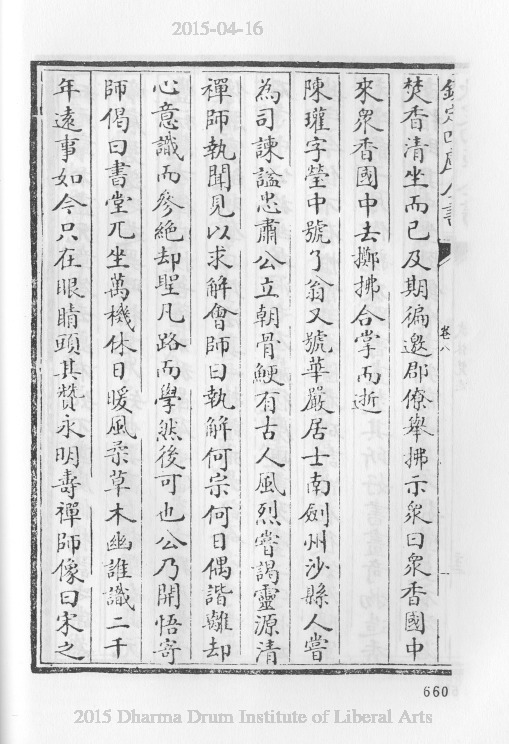 2015-04-16
欽定四庫全書
卷八
焚香清坐而已及期徧邀郡僚舉拂示衆曰衆香國中
來衆香國中去擲拂合掌而逝
陳瓘字瑩中號了翁又號華嚴居士南劍州沙縣人嘗
為司諫謚忠肅公立朝骨鯁有古人風烈嘗謁靈源清
禪師執聞見以求解會師曰執解何宗何日偶諧離却
心意識而參絕却聖凡路而學然後可也公乃開悟寄
師偈曰書堂兀坐萬機休日暖風柔草木幽誰識二千
年遠事如今只在眼睛頭其贊永明壽禪師像曰宋之
660
2015 Dharma Drum Institute of Liberal Arts